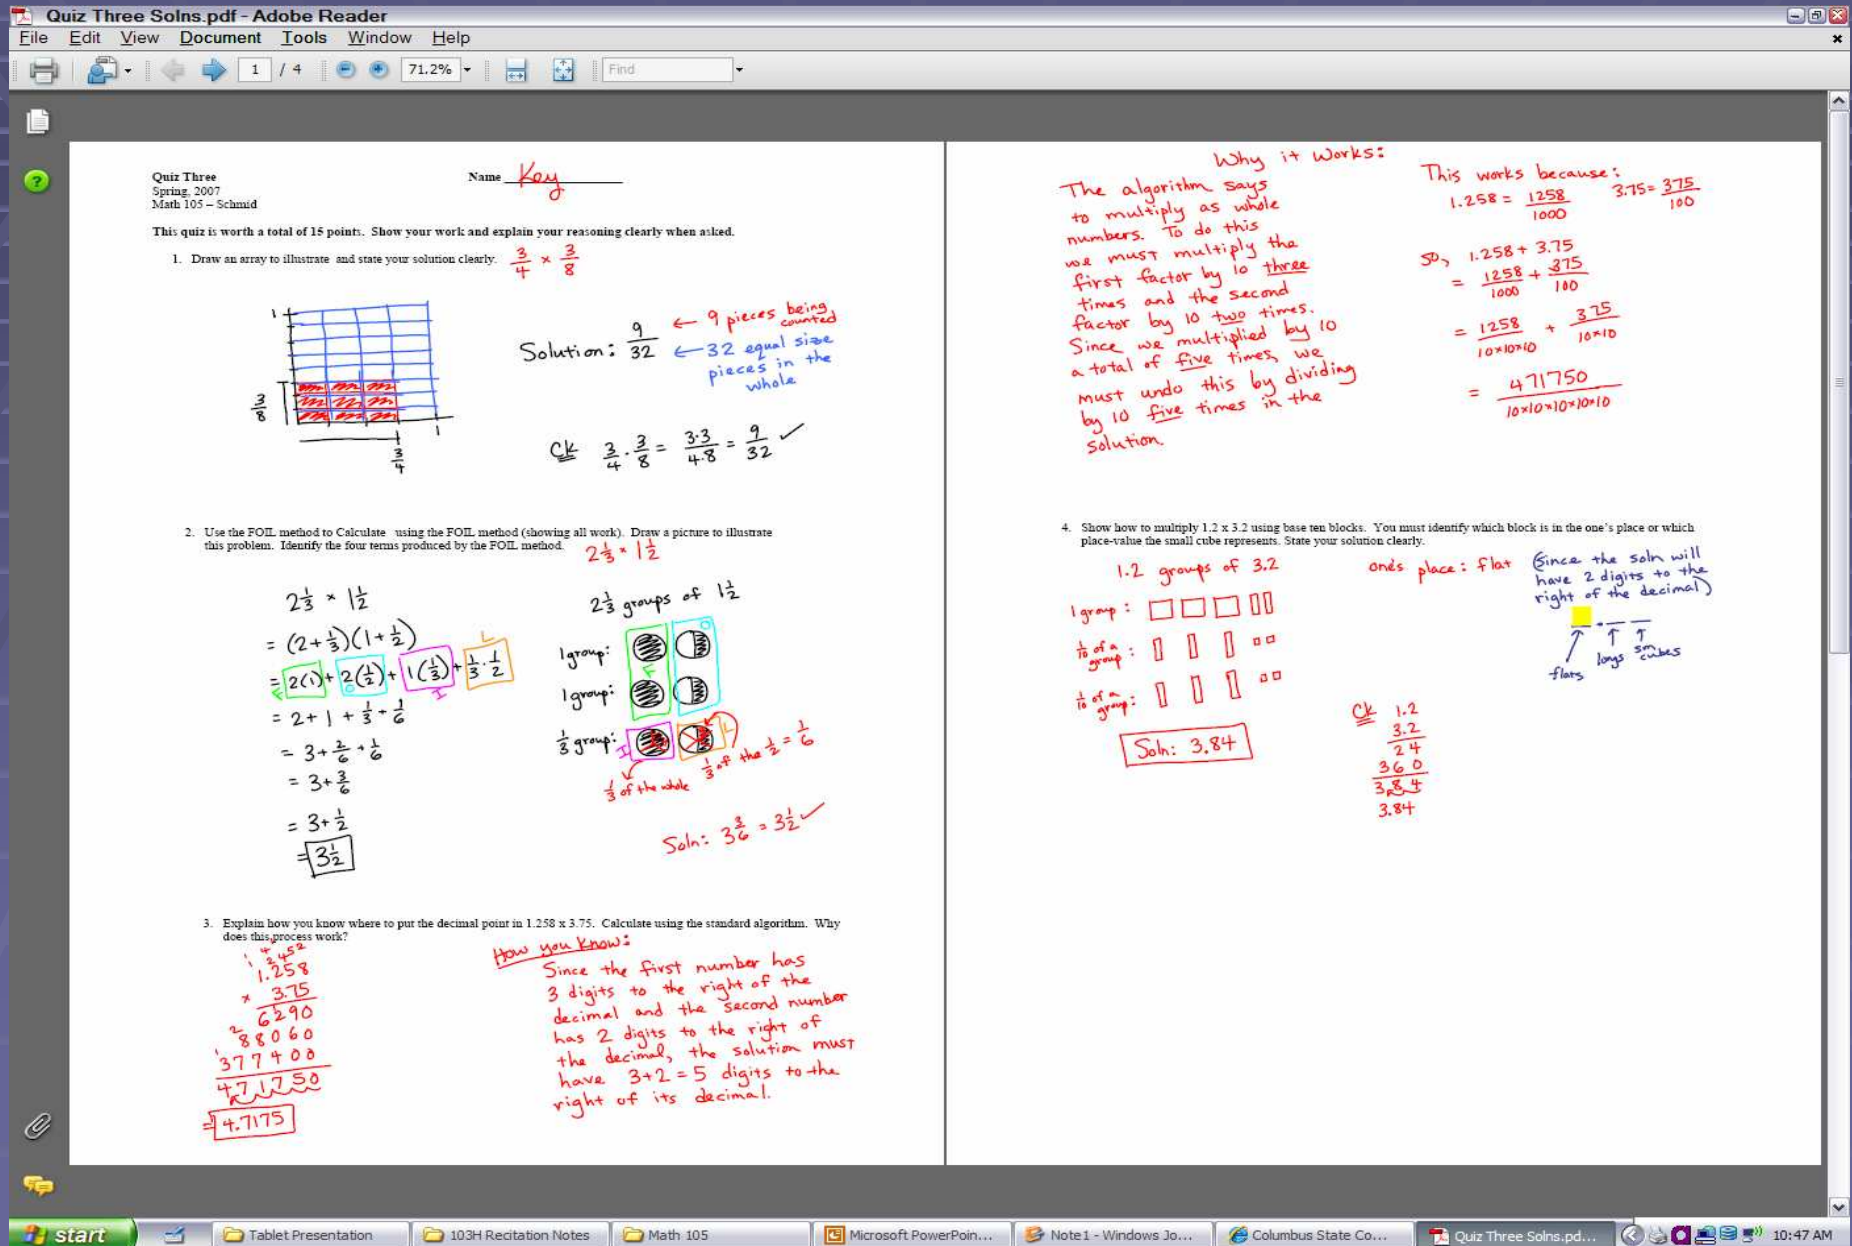 Quiz Three Solns.pdf - Adobe Reader
File Edit View Document Tools Window Help
1 / 4 71.2% Find
Quiz Three
Spring, 2007
Math 105 – Schmid
Name Key
This quiz is worth a total of 15 points. Show your work and explain your reasoning clearly when asked.
1. Draw an array to illustrate and state your solution clearly. 3/4 × 3/8
1
3/8
3/4
1
Solution: 9/32
← 9 pieces being counted
← 32 equal size
pieces in the
whole
Ck 3/4 · 3/8 = 3·3/4·8 = 9/32 ✓
2. Use the FOIL method to Calculate using the FOIL method (showing all work). Draw a picture to illustrate
this problem. Identify the four terms produced by the FOIL method.
2 1/3 × 1 1/2
2 1/3 × 1 1/2
= (2+1/3)(1+1/2)
= 2(1) + 2(1/2) + 1(1/3) + 1/3 · 1/2
F O I L
= 2 + 1 + 1/3 + 1/6
= 3 + 2/6 + 1/6
= 3 + 3/6
= 3 + 1/2
= 3 1/2
2 1/3 groups of 1 1/2
1 group: F O
1 group:
1/3 group: I L
1/3 of the whole
1/3 of the 1/2 = 1/6
Soln: 3 3/6 = 3 1/2 ✓
3. Explain how you know where to put the decimal point in 1.258 x 3.75. Calculate using the standard algorithm. Why
does this process work?
1.258
× 3.75
6290
88060
377400
471750
= 4.7175
How you know:
Since the first number has
3 digits to the right of the
decimal and the second number
has 2 digits to the right of
the decimal, the solution must
have 3+2 = 5 digits to the
right of its decimal.
Why it works:
The algorithm says
to multiply as whole
numbers. To do this
we must multiply the
first factor by 10 three
times and the second
factor by 10 two times.
Since we multiplied by 10
a total of five times, we
must undo this by dividing
by 10 five times in the
solution.
This works because:
1.258 = 1258/1000 3.75 = 375/100
so, 1.258 + 3.75
= 1258/1000 + 375/100
= 1258/10×10×10 + 375/10×10
= 471750/10×10×10×10×10
4. Show how to multiply 1.2 x 3.2 using base ten blocks. You must identify which block is in the one's place or which
place-value the small cube represents. State your solution clearly.
1.2 groups of 3.2
one's place: flat
(Since the soln will
have 2 digits to the
right of the decimal)
1 group:
1/10 of a group:
1/10 of a group:
flats longs sm cubes
Soln: 3.84
Ck 1.2
3.2
24
360
384
3.84
start Tablet Presentation 103H Recitation Notes Math 105 Microsoft PowerPoin... Note1 - Windows Jo... Columbus State Co... Quiz Three Solns.pd... 10:47 AM